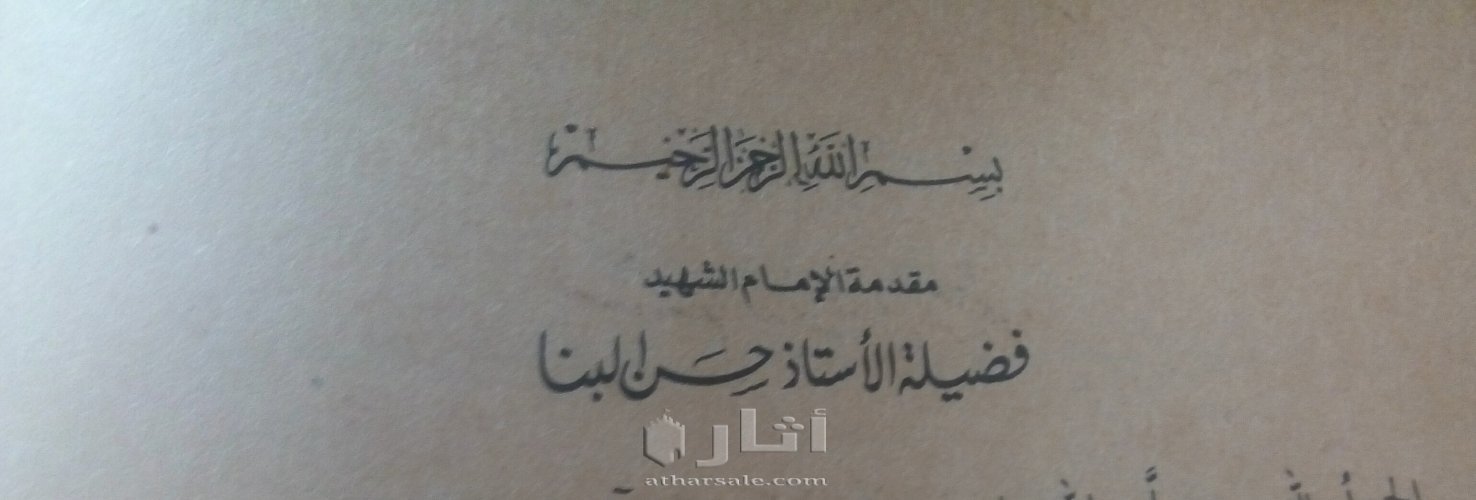 بِسْمِ اللَّهِ الرَّحْمَنِ الرَّحِيمِ
مقدمة الإمام الشهيد
فضيلة الأستاذ حسن البنا
أثار
atharsale.com